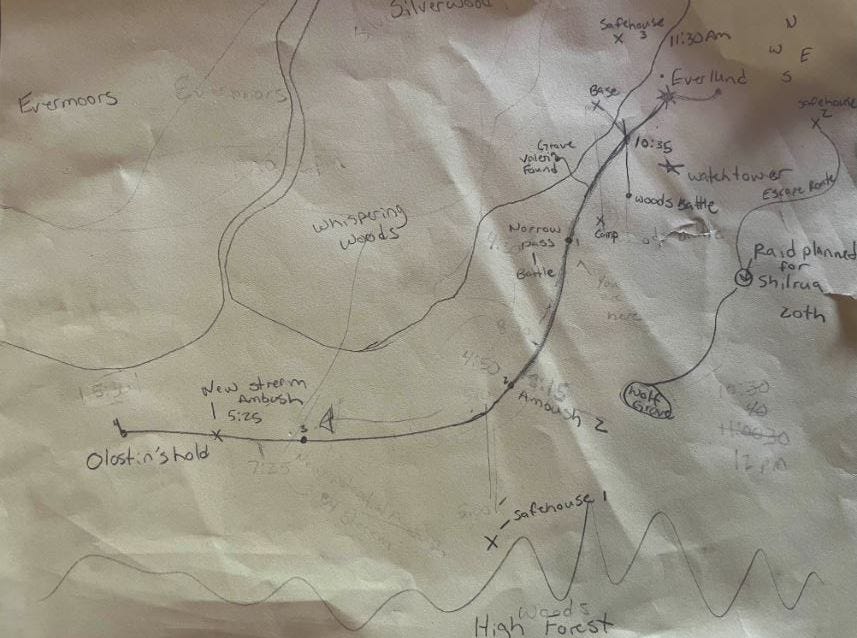 Silverwood
Safehouse
3
11:30 Am
N
W E
S
Everlund
Evermoors
Evermoors
Base
Safehouse
2
10:35
Grave
Valeria
Found
watchtower
Escape Route
Woods Battle
Whispering
Woods
Camp
Norrow
pass
1
Battle
You
are
here
Raid planned
for
Shilrua
20th
4:50
8:15
2
Ambush 2
Wolf
Grove
10:30
40
12 pm
New streem
Ambush
5:25
3
Olostin's hold
7:25
5:00
Safehouse 1
Woods
High Forest